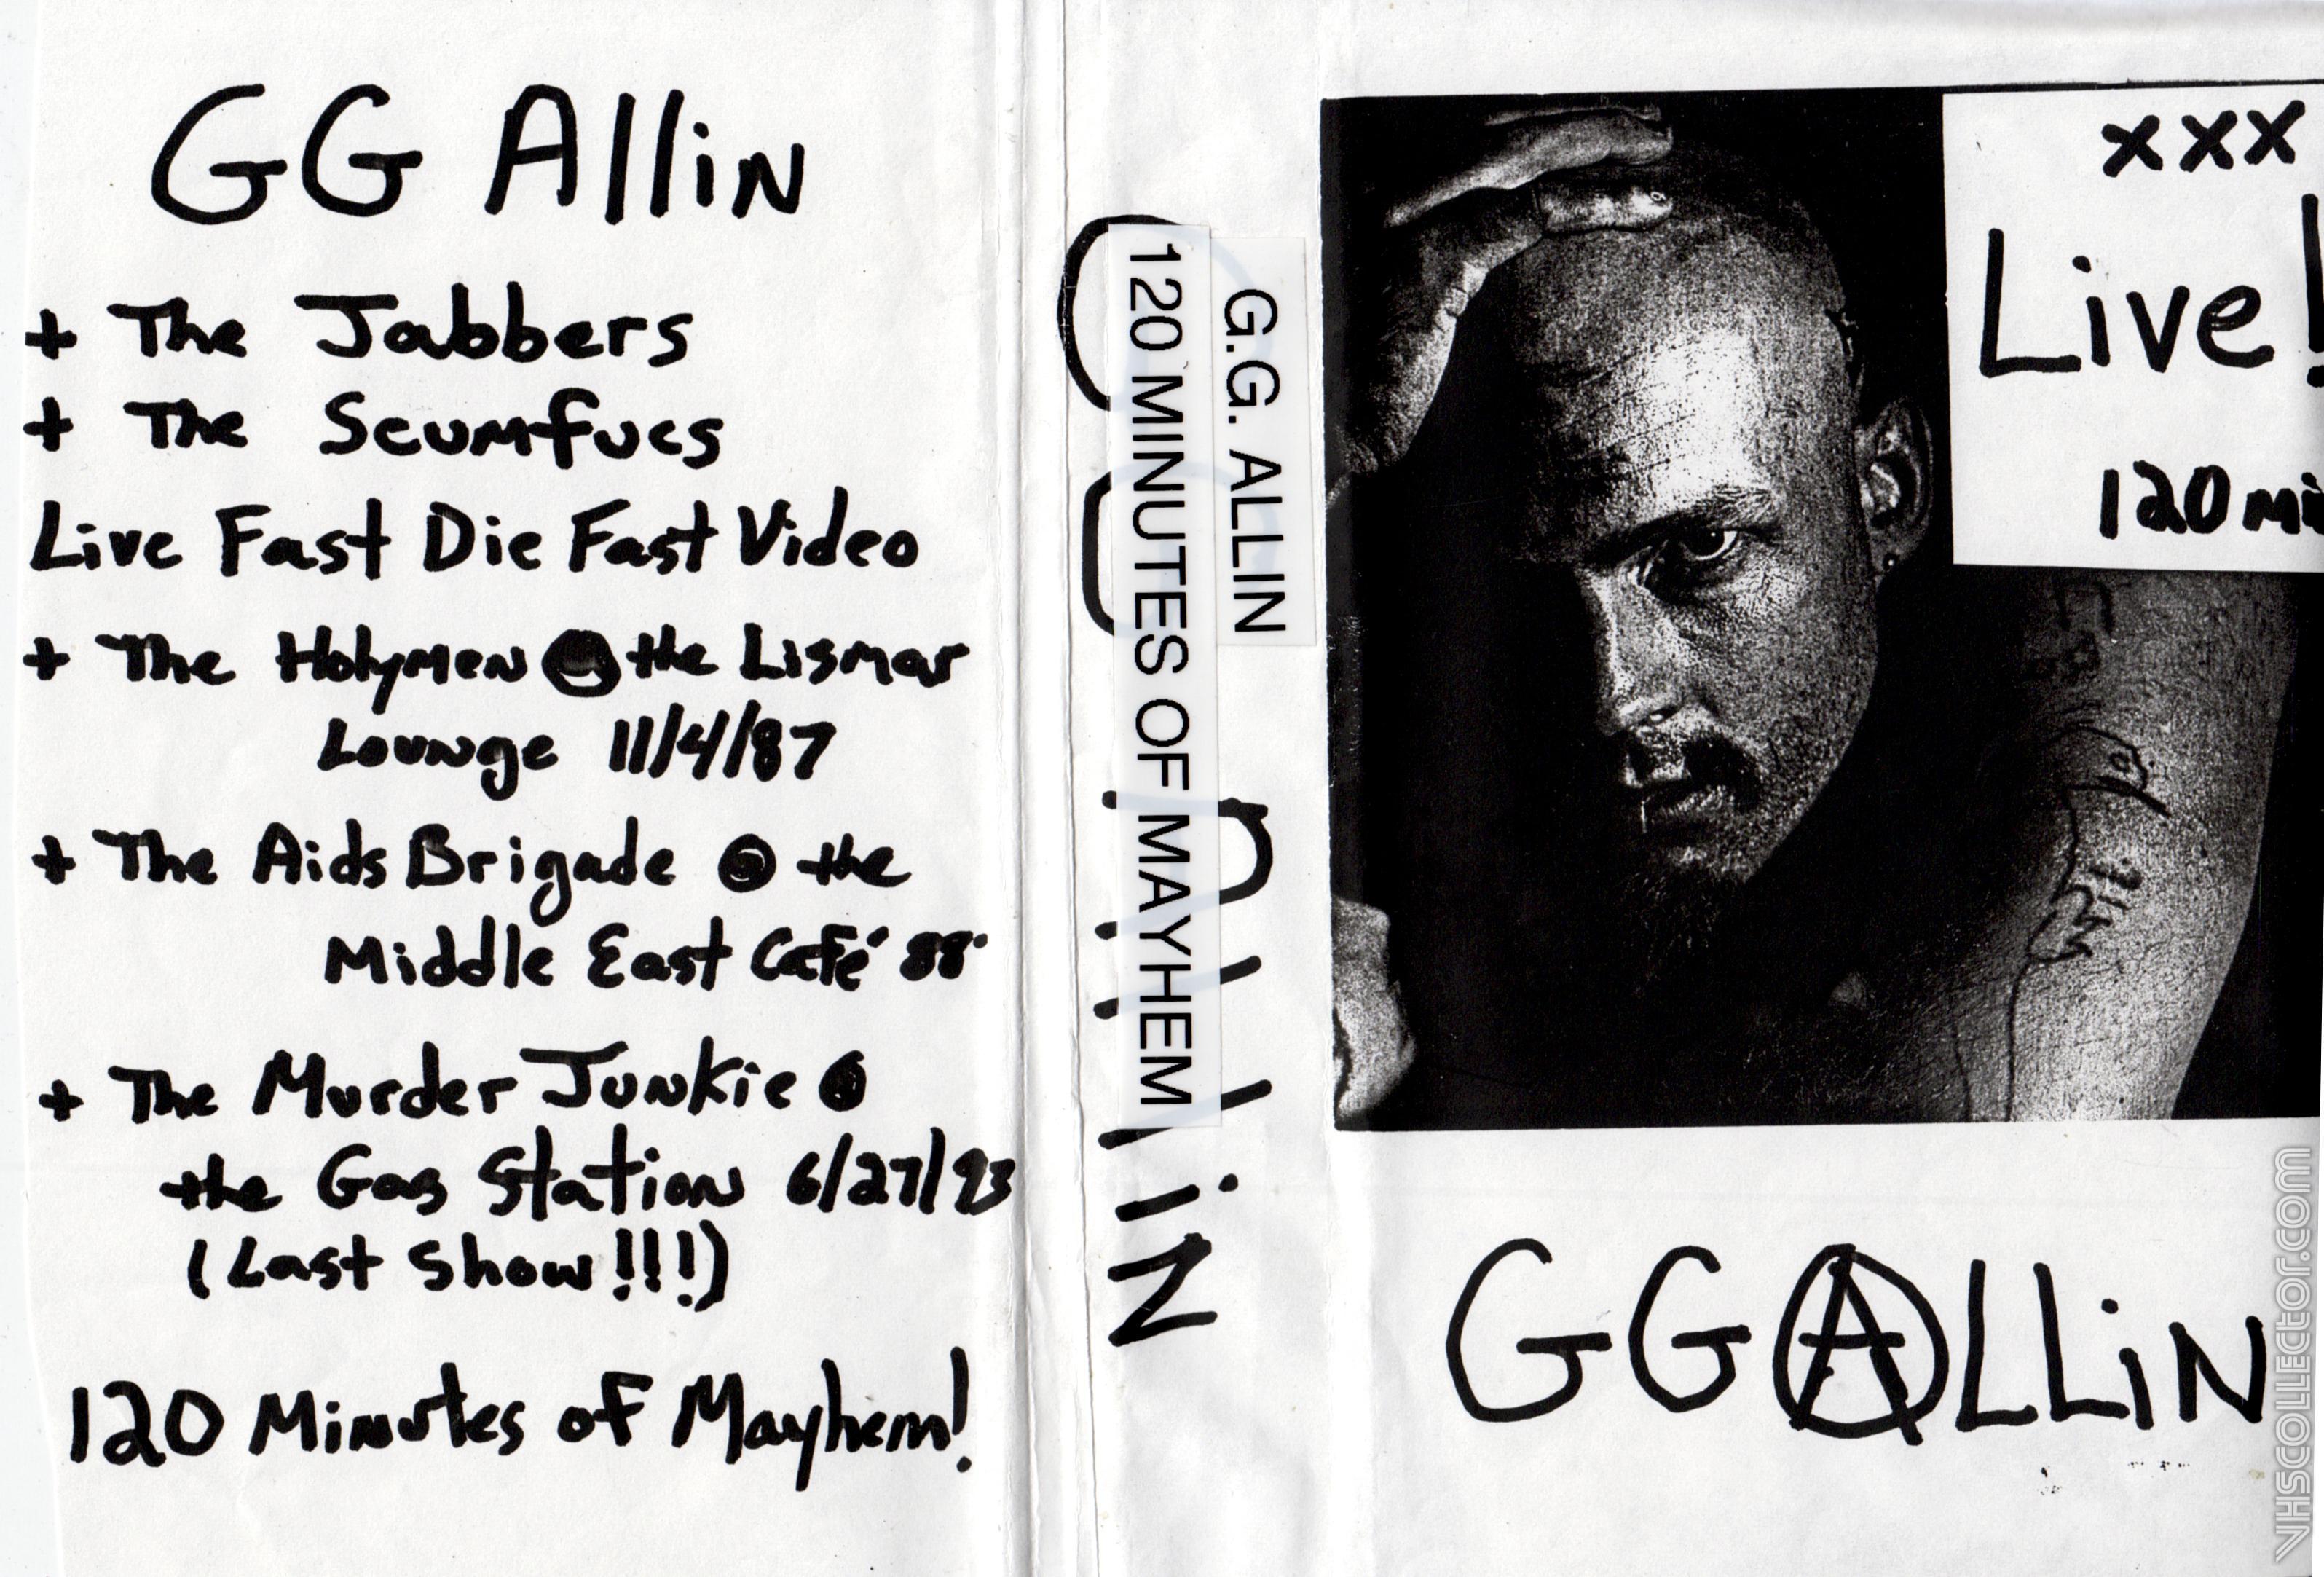 GG Allin
+ The Jabbers
+ The Scumfucs
Live Fast Die Fast Video
+ The Holymen @ the Lismar
Lounge 11/4/87
+ The Aids Brigade @ the
Middle East Café 88'
+ The Murder Junkie @
the Gas Station 6/27/93
(Last Show!!!)
120 Minutes of Mayhem!
G.G. ALLIN
120 MINUTES OF MAYHEM
xxx
Live!
120 mi
GG ALLiN
VHSCOLLECTOR.COM